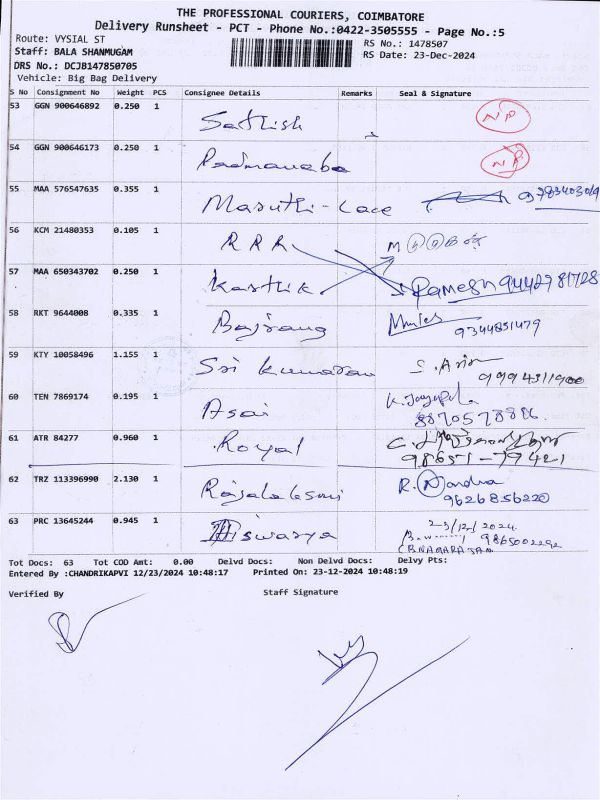 THE PROFESSIONAL COURIERS, COIMBATORE
Delivery Runsheet - PCT - Phone No.:0422-3505555 - Page No.:5
Route: VYSIAL ST
RS No.: 1478507
Staff: BALA SHANMUGAM
RS Date: 23-Dec-2024
DRS No.: DCJB147850705
Vehicle: Big Bag Delivery
S No Consignment No Weight PCS Consignee Details Remarks Seal & Signature
53 GGN 900646892 0.250 1 Sathish NP
54 GGN 900646173 0.250 1 Padmanaba NP
55 MAA 576547635 0.355 1 Maruthi-Lace
56 KCM 21480353 0.105 1 RRR
57 MAA 650343702 0.250 1 Karthik Ramesh 9442781728
58 RKT 9644008 0.335 1 Bajrang 9344851479
59 KTY 10058496 1.155 1 Sri Kumaran 9994311900
60 TEN 7869174 0.195 1 Asai
61 ATR 84277 0.960 1 Royal 98651-79421
62 TRZ 113396990 2.130 1 Rajalakshmi R. Nandha 9626856220
63 PRC 13645244 0.945 1 Aiswarya 23/12/2024 9865002292
Tot Docs: 63 Tot COD Amt: 0.00 Delvd Docs: Non Delvd Docs: Delvy Pts:
Entered By :CHANDRIKAPVI 12/23/2024 10:48:17 Printed On: 23-12-2024 10:48:19
Verified By Staff Signature